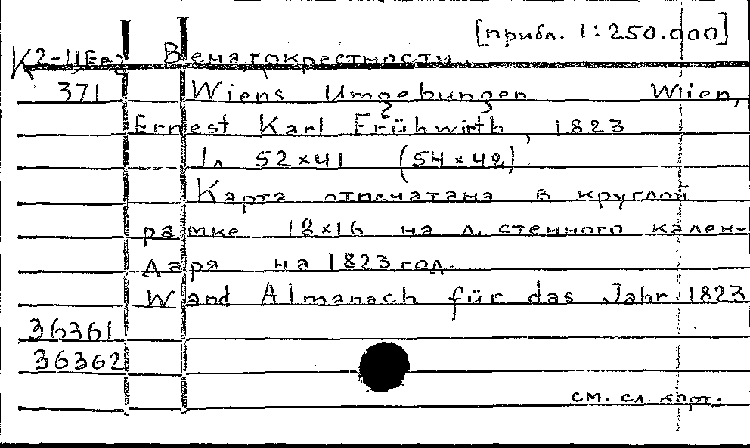 [прибл. 1:250.000]
Вена-окрестности.
371 Wiens Umgebungen Wien,
Ernest Karl Frühwirth, 1823
1 л 52×41 (54×42)
Карта отпечатана в круглой
рамке 18×16 на л. стенного кален-
даря на 1823 год.
Wand Almanach für das Jahr 1823
36361
36362
см. сл. карт.